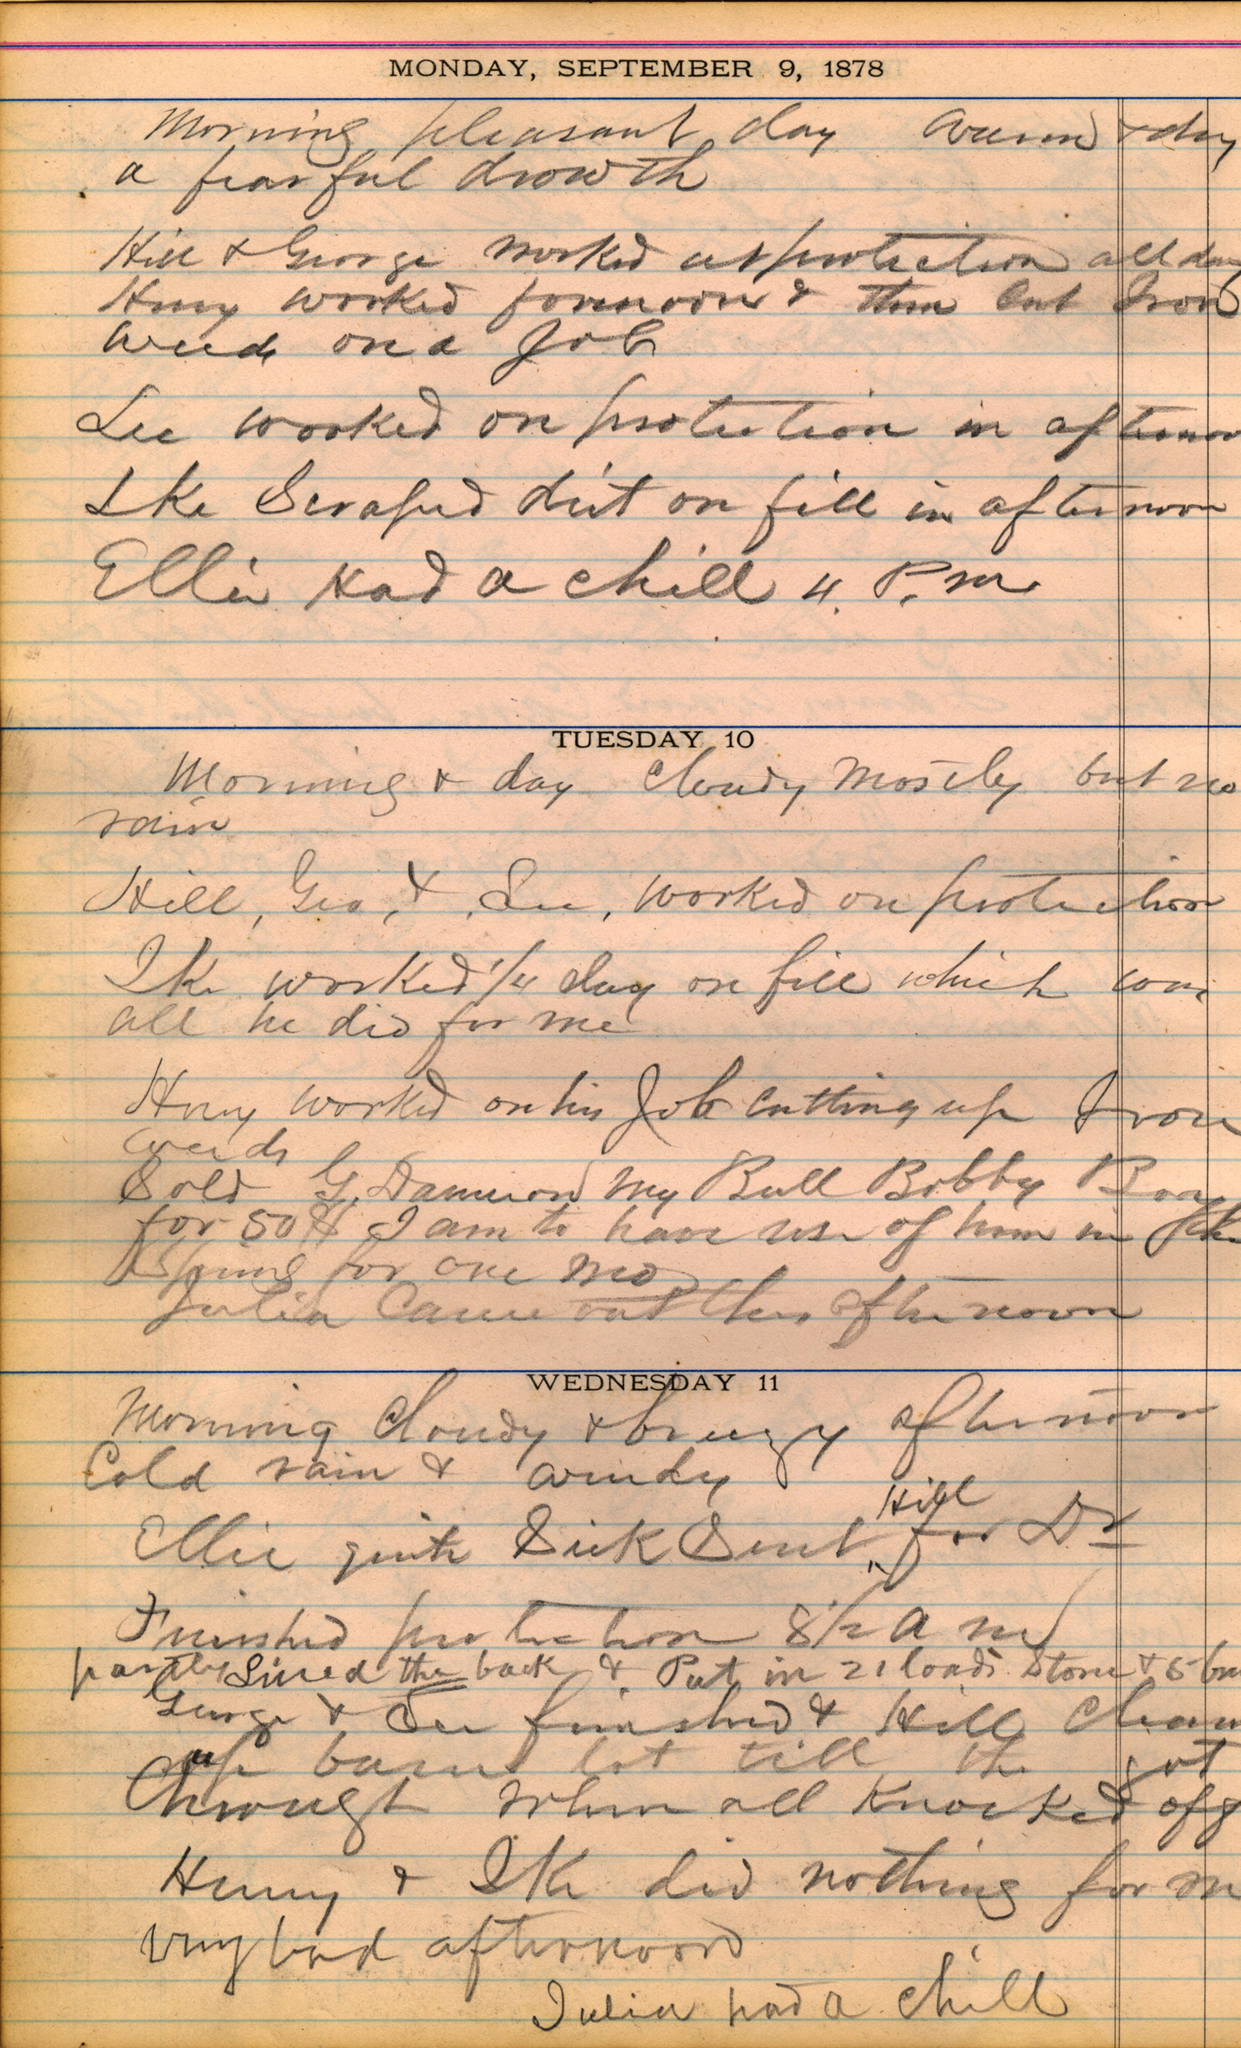 MONDAY, SEPTEMBER 9, 1878
Morning pleasant day warm & dry
a fearful drowth
Hill & George worked at protection all day
Henry worked forenoon & then cut Iron
weeds on a Job
Lee worked on protection in afternoon
Ike Scraped dirt on fill in afternoon
Ellie Had a chill 4. P. m
TUESDAY 10
Morning & day Cloudy Mostly but no
rain
Hill, Geo, & Lee, worked on protection
Ike worked 1/4 day on fill which was
all he did for me
Henry worked on his Job Cutting up Iron
weeds
Sold G. Dameron my Bull Bobby
for 50$ I am to have use of him in the
Spring for one mo
Julia Came out this afternoon
WEDNESDAY 11
Morning Cloudy & breezy afternoon
Cold rain & windy
Ellie quite Sick Sent Hill for Dr
Finished protection 8 1/2 A m
partly Lined the back & Put in 21 loads Stone & 5
George & Lee finished & Hill Clean
up barn lot till the got
through when all Knocked off
Henry & Ike did nothing for m
very bad afternoon
Julia had a chill